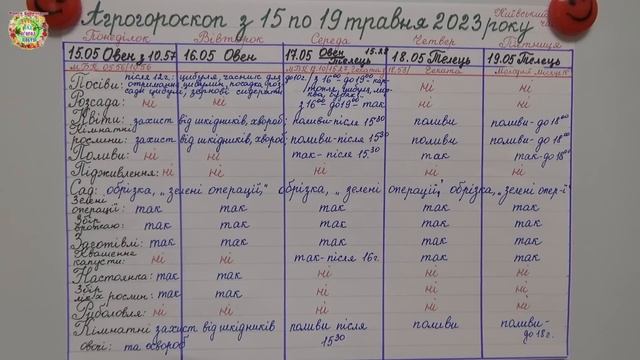 Агрогороскоп з 15 по 19 травня 2023 року
Київський
Понеділок Вівторок Середа Четвер П'ятниця
15.05 Овен з 10.57 16.05 Овен 17.05 Овен Телець 18.05 Телець 19.05 Телець
Посіви: після 12г.: цибуля, часник для
Розсада: ні ні з 16⁰⁰ до 19⁰⁰ так ні ні
Квіти: захист від шкідників, хвороб; поливи-після 15³⁰ поливи поливи-до 18⁰⁰
Кімнатні
рослини: захист від шкідників, хвороб; поливи-після 15³⁰ поливи поливи-до 18⁰⁰
Поливи: ні ні так-після 15.³⁰ так так-до 18⁰⁰
Підживлення: ні ні ні ні ні
Сад: обрізка, „зелені операції," обрізка, „зелені операції," обрізка, „зелені опер-ї"
Зелені
операції: так так так так так
Збір
врожаю: так так так так так
Заготівлі: так так так так так
Квашення
капусти: ні ні так-після 16г. так так
Настоянка: так так ні ні ні
Збір
рослин: так так ні ні ні
Риболовля: ні ні ні ні ні
Кімнатні захист від шкідників поливи після поливи поливи-
овочі: та хвороб 15³⁰ до 18г.